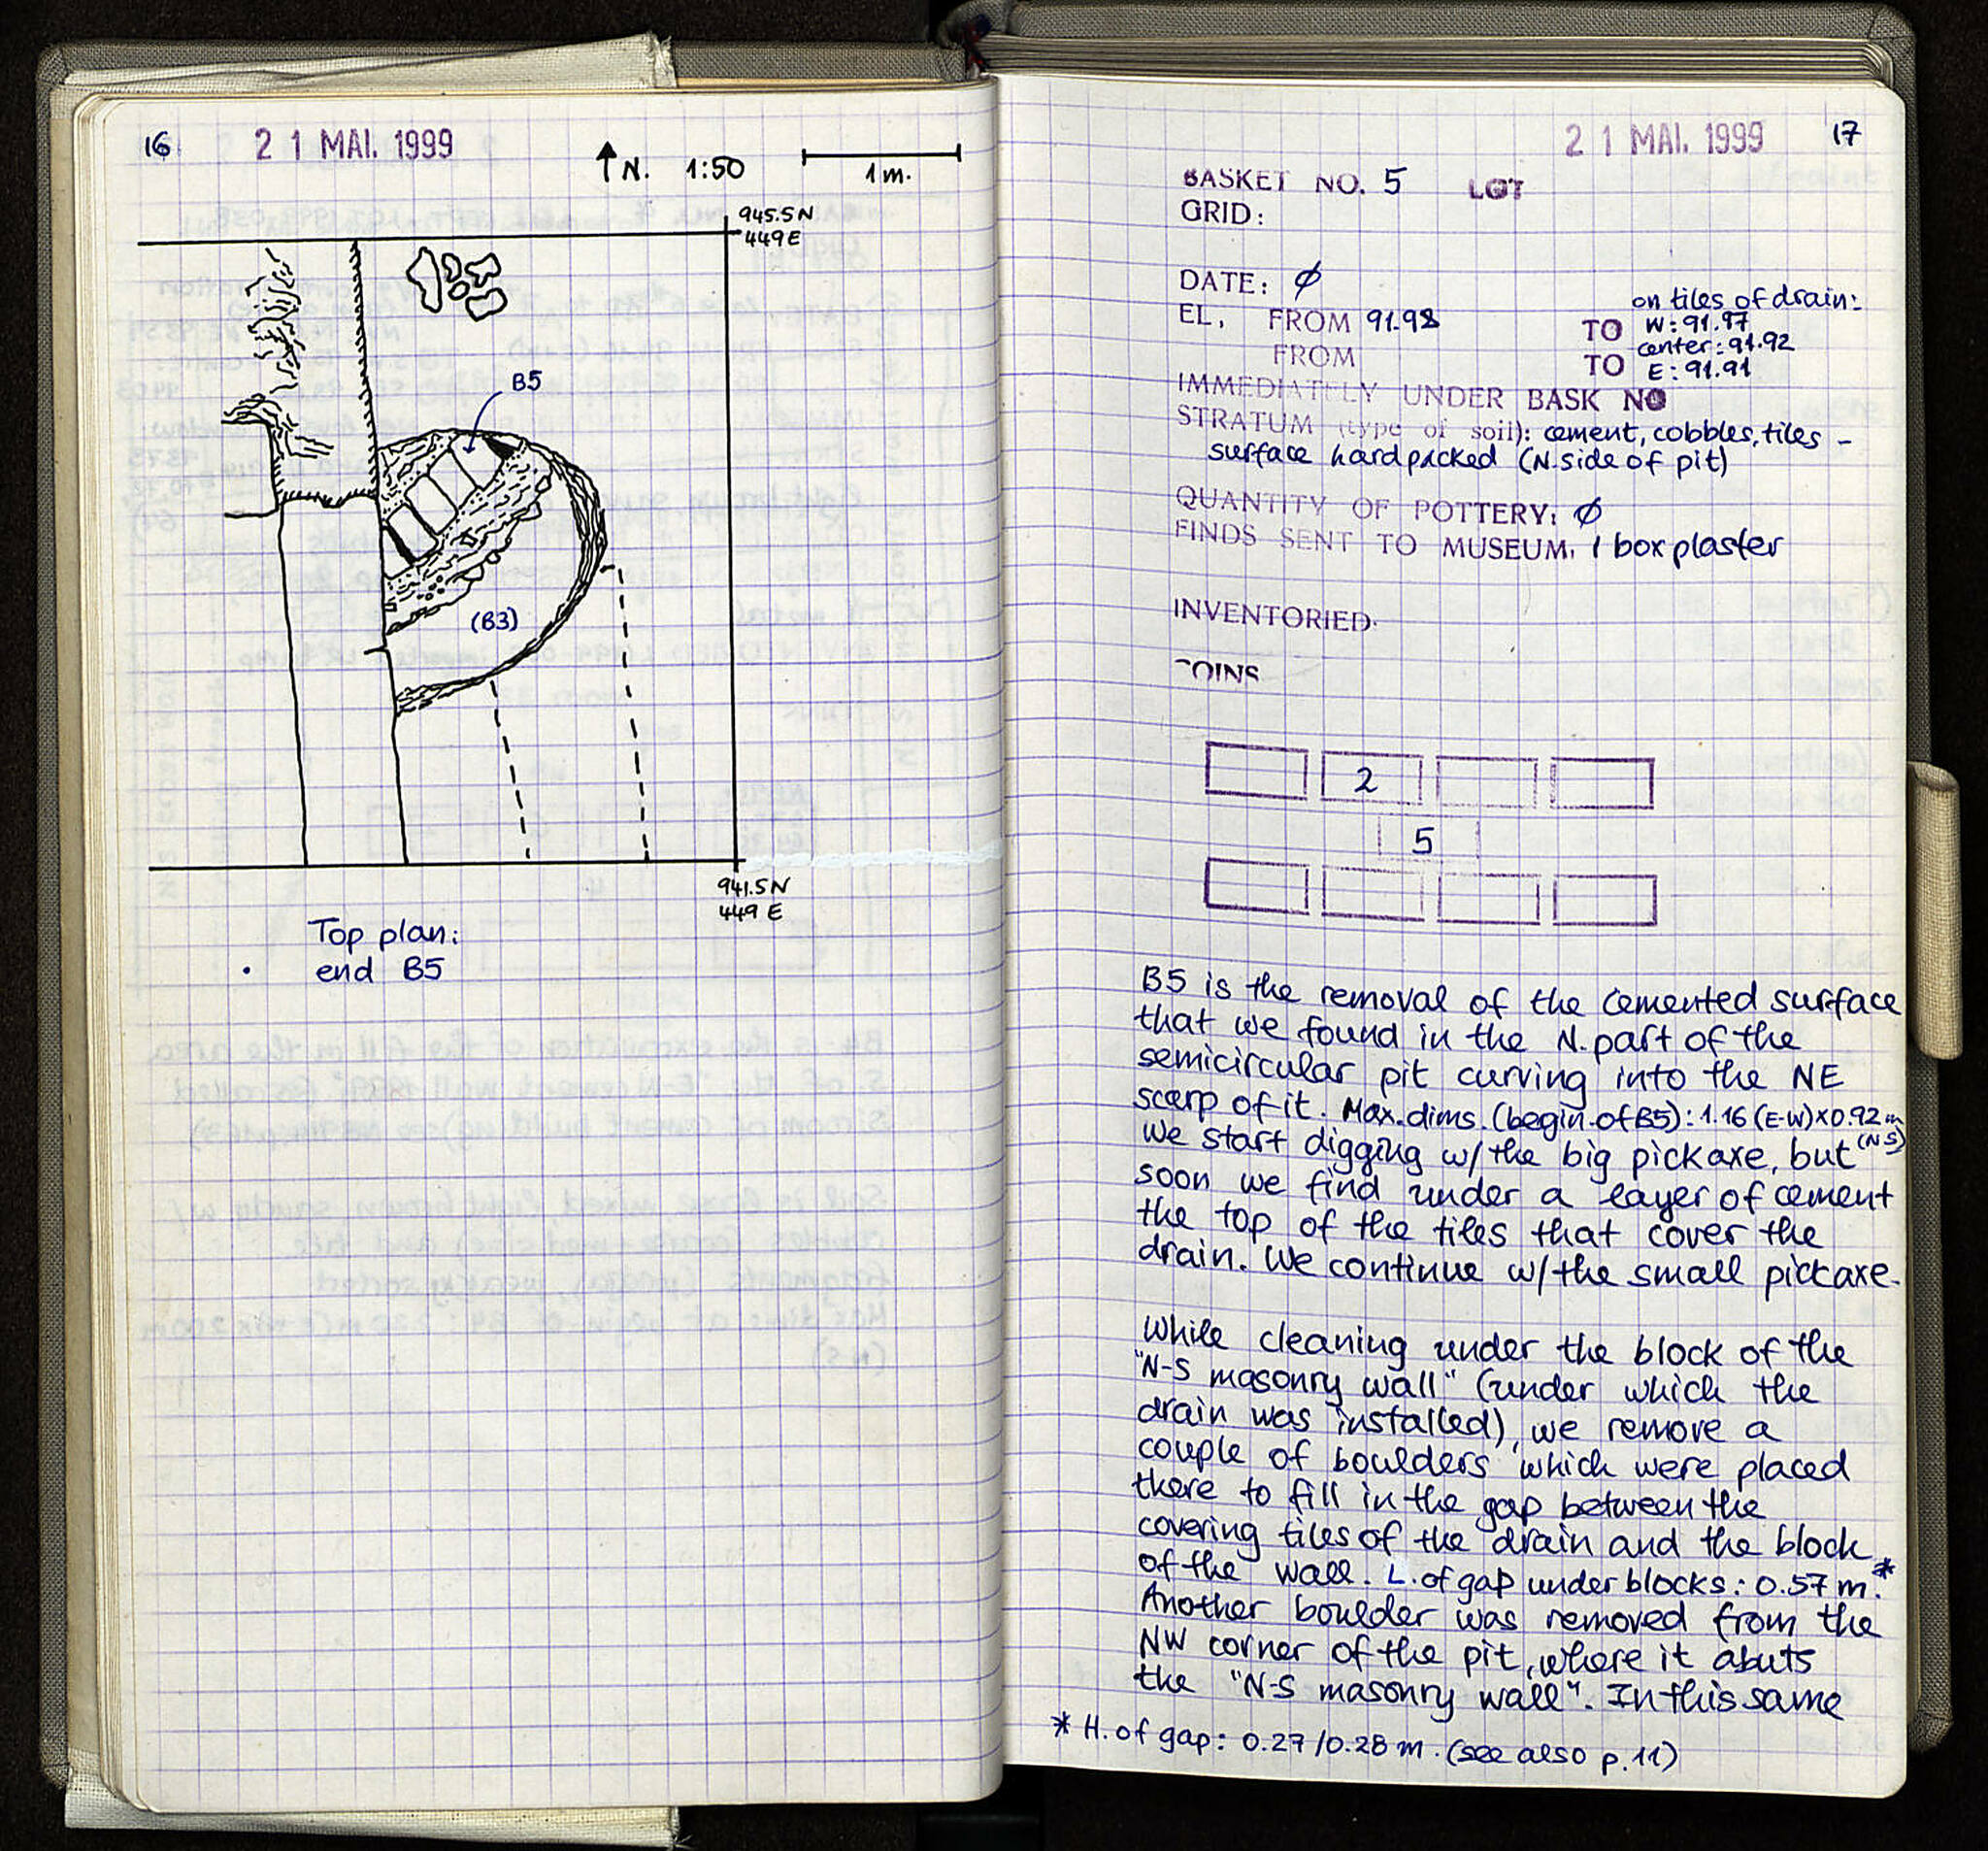 16
21 MAI. 1999
N. 1:50
1 m.
945.5 N
449 E
B5
(B3)
941.5 N
449 E
Top plan:
end B5
21 MAI. 1999
17
BASKET NO. 5 LOT
GRID:
DATE: ∅
on tiles of drain:
EL. FROM 91.98 TO W: 91.97
center: 91.92
FROM TO E: 91.91
IMMEDIATELY UNDER BASK NO
STRATUM (type of soil): cement, cobbles, tiles -
surface hardpacked (N. side of pit)
QUANTITY OF POTTERY: ∅
FINDS SENT TO MUSEUM. 1 box plaster
INVENTORIED.
COINS
2
5
B5 is the removal of the cemented surface
that we found in the N. part of the
semicircular pit curving into the NE
scarp of it. Max. dims. (begin. of B5): 1.16 (E-W) x 0.92 m
(N S)
We start digging w/ the big pickaxe, but
soon we find under a layer of cement
the top of the tiles that cover the
drain. We continue w/ the small pickaxe.
While cleaning under the block of the
"N-S masonry wall" (under which the
drain was installed), we remove a
couple of boulders which were placed
there to fill in the gap between the
covering tiles of the drain and the block
of the wall. L. of gap under blocks: 0.57 m.*
Another boulder was removed from the
NW corner of the pit, where it abuts
the "N-S masonry wall". In this same
* H. of gap: 0.27/0.28 m. (see also p. 11)